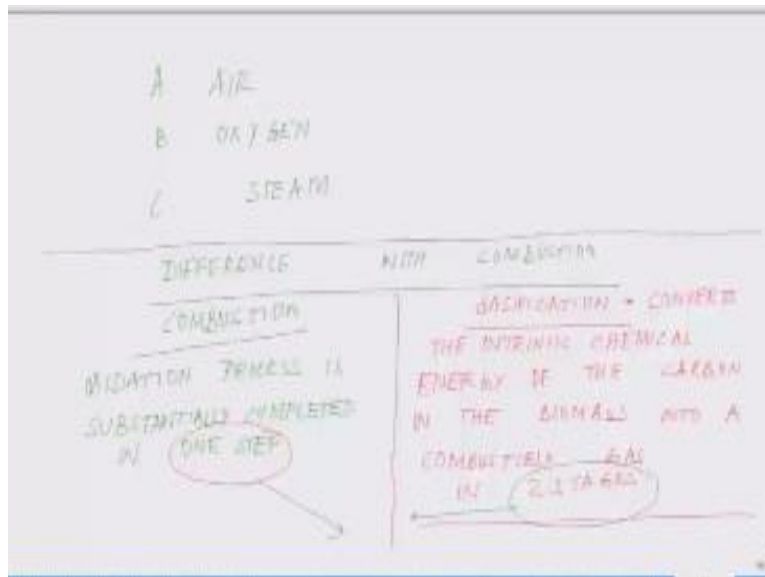 A AIR
B OXYGEN
C STEAM
DIFFERENCE WITH COMBUSTION
COMBUSTION
OXIDATION PROCESS IS
SUBSTANTIALLY COMPLETED
IN ONE STEP
GASIFICATION - CONVERTS
THE INTRINSIC CHEMICAL
ENERGY OF THE CARBON
IN THE BIOMASS INTO A
COMBUSTIBLE GAS
IN 2 STAGES